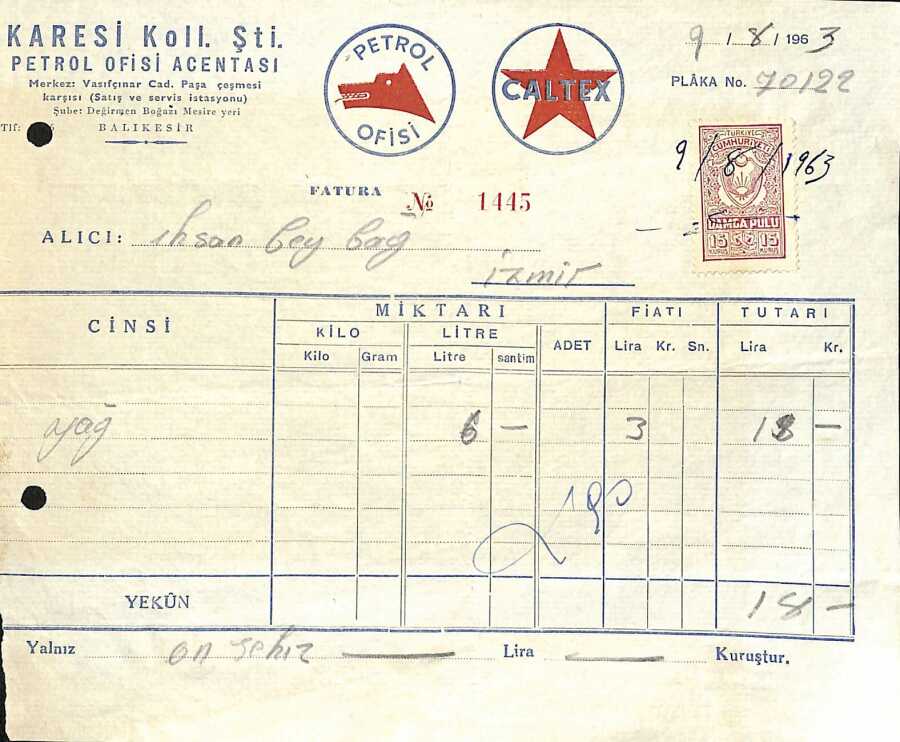 KARESİ Koll. Şti.
PETROL OFİSİ ACENTASI
Merkez: Vasıfçınar Cad. Paşa çeşmesi
karşısı (Satış ve servis istasyonu)
Şube: Değirmen Boğazı Mesire yeri
Tlf:
BALIKESİR
PETROL
OFİSİ
CALTEX
9 / 8 / 1963
PLÂKA No. 70122
TÜRKİYE
CUMHURİYETİ
9 / 8 / 1963
DAMGA PULU
15 15
KURUŞ KURUŞ
FATURA № 1445
ALICI: ihsan bey bağ
izmir
CİNSİ MİKTARI FİATI TUTARI
KİLO LİTRE ADET Lira Kr. Sn. Lira Kr.
Kilo Gram Litre santim
yağ 6 — 3 18 —
YEKÛN 18 —
Yalnız on sekiz — Lira — Kuruştur.